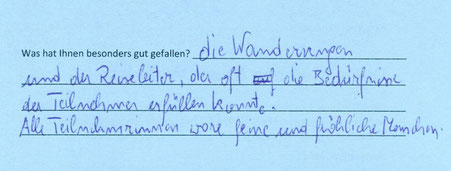 Was hat Ihnen besonders gut gefallen? die Wanderungen
und der Reiseleiter, der oft die Bedürfnisse
der Teilnehmer erfüllen konnte.
Alle Teilnehmerinnen ware feine und fröhliche Menschen.